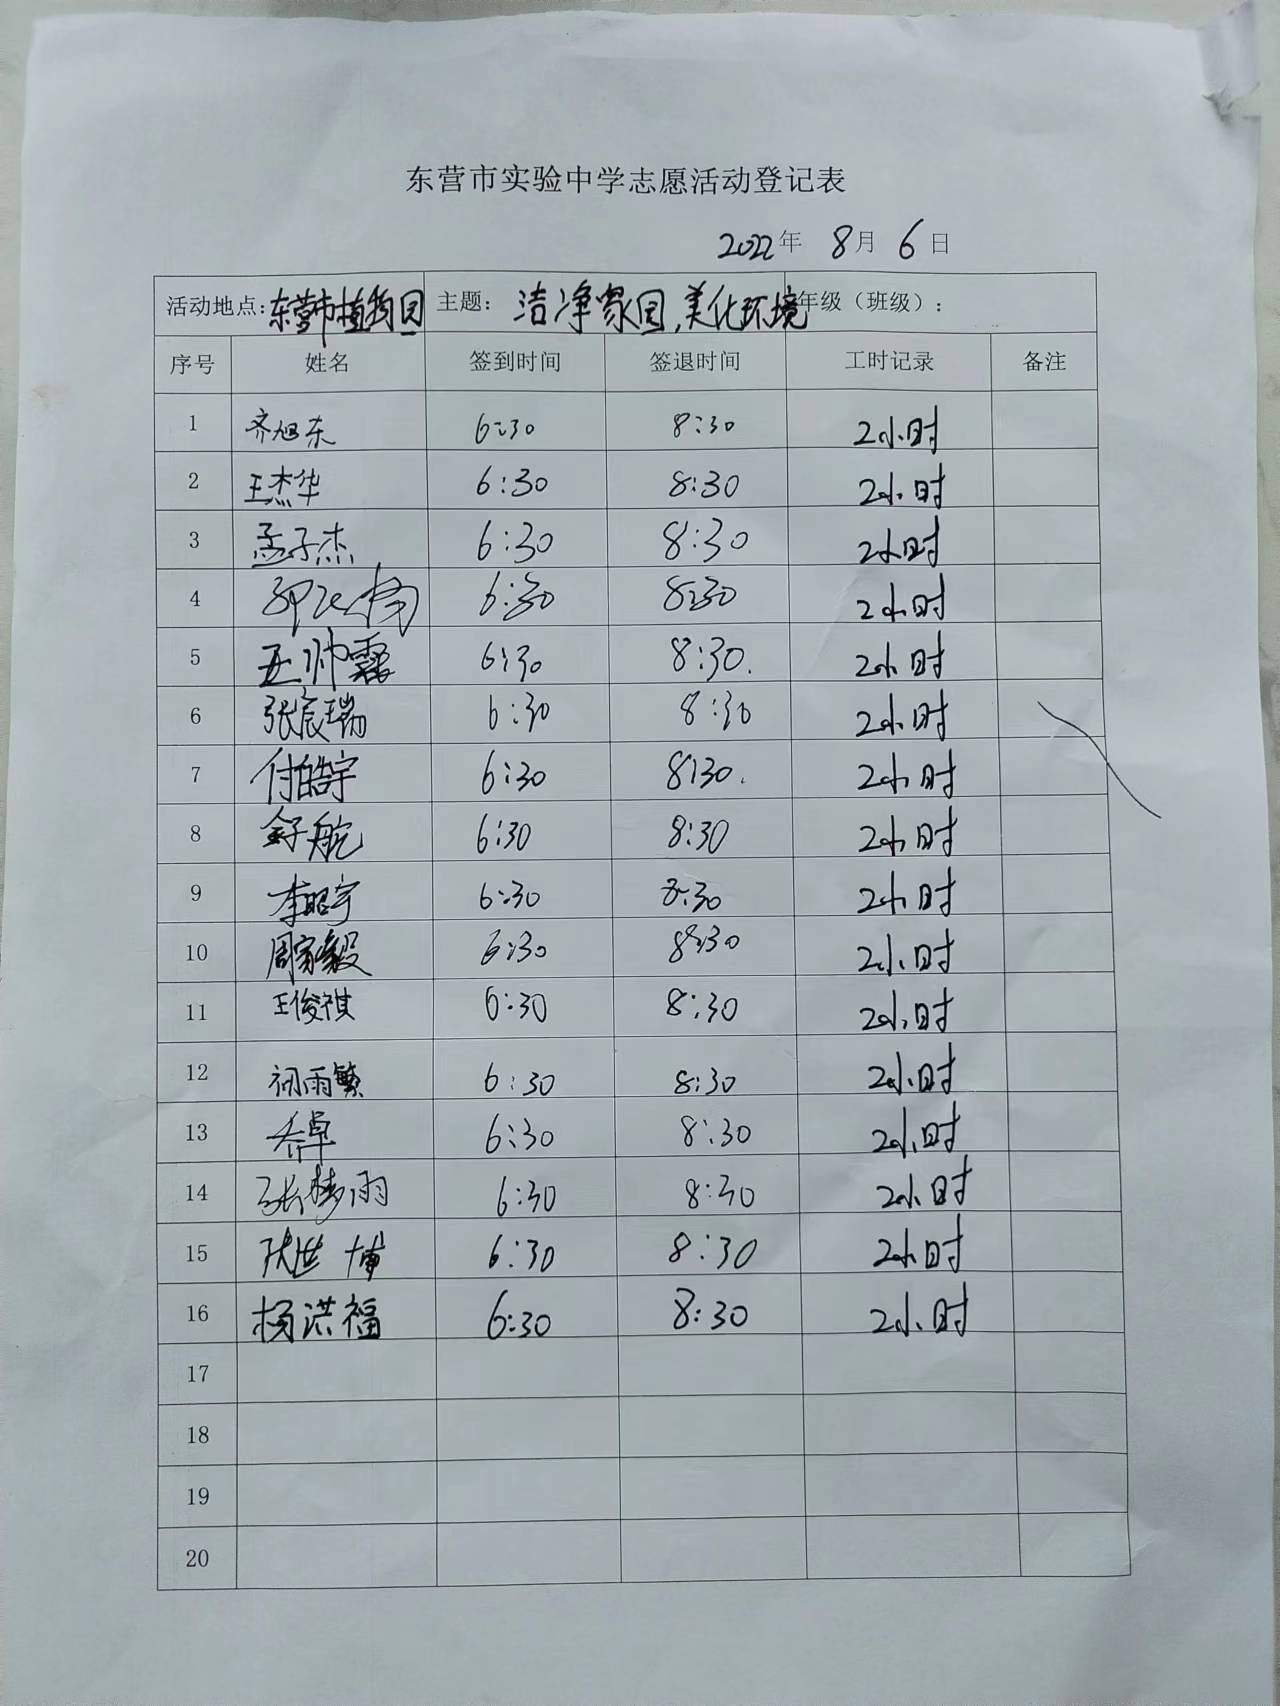 东营市实验中学志愿活动登记表
2022年 8月 6日
活动地点:东营市植物园 主题: 洁净家园,美化环境 年级（班级）:
序号 姓名 签到时间 签退时间 工时记录 备注
1 齐旭东 6:30 8:30 2小时
2 王杰华 6:30 8:30 2小时
3 孟子杰 6:30 8:30 2小时
4 6:30 8:30 2小时
5 王帅霖 6:30 8:30. 2小时
6 张宸瑞 6:30 8:30 2小时
7 付皓宇 6:30 8:30. 2小时
8 舒航 6:30 8:30 2小时
9 李昭宇 6:30 8:30 2小时
10 周家毅 6:30 8:30 2小时
11 王俊祺 6:30 8:30 2小时
12 初雨繁 6:30 8:30 2小时
13 乔卓 6:30 8:30 2小时
14 张梦雨 6:30 8:30 2小时
15 博 6:30 8:30 2小时
16 杨洪福 6:30 8:30 2小时
17
18
19
20